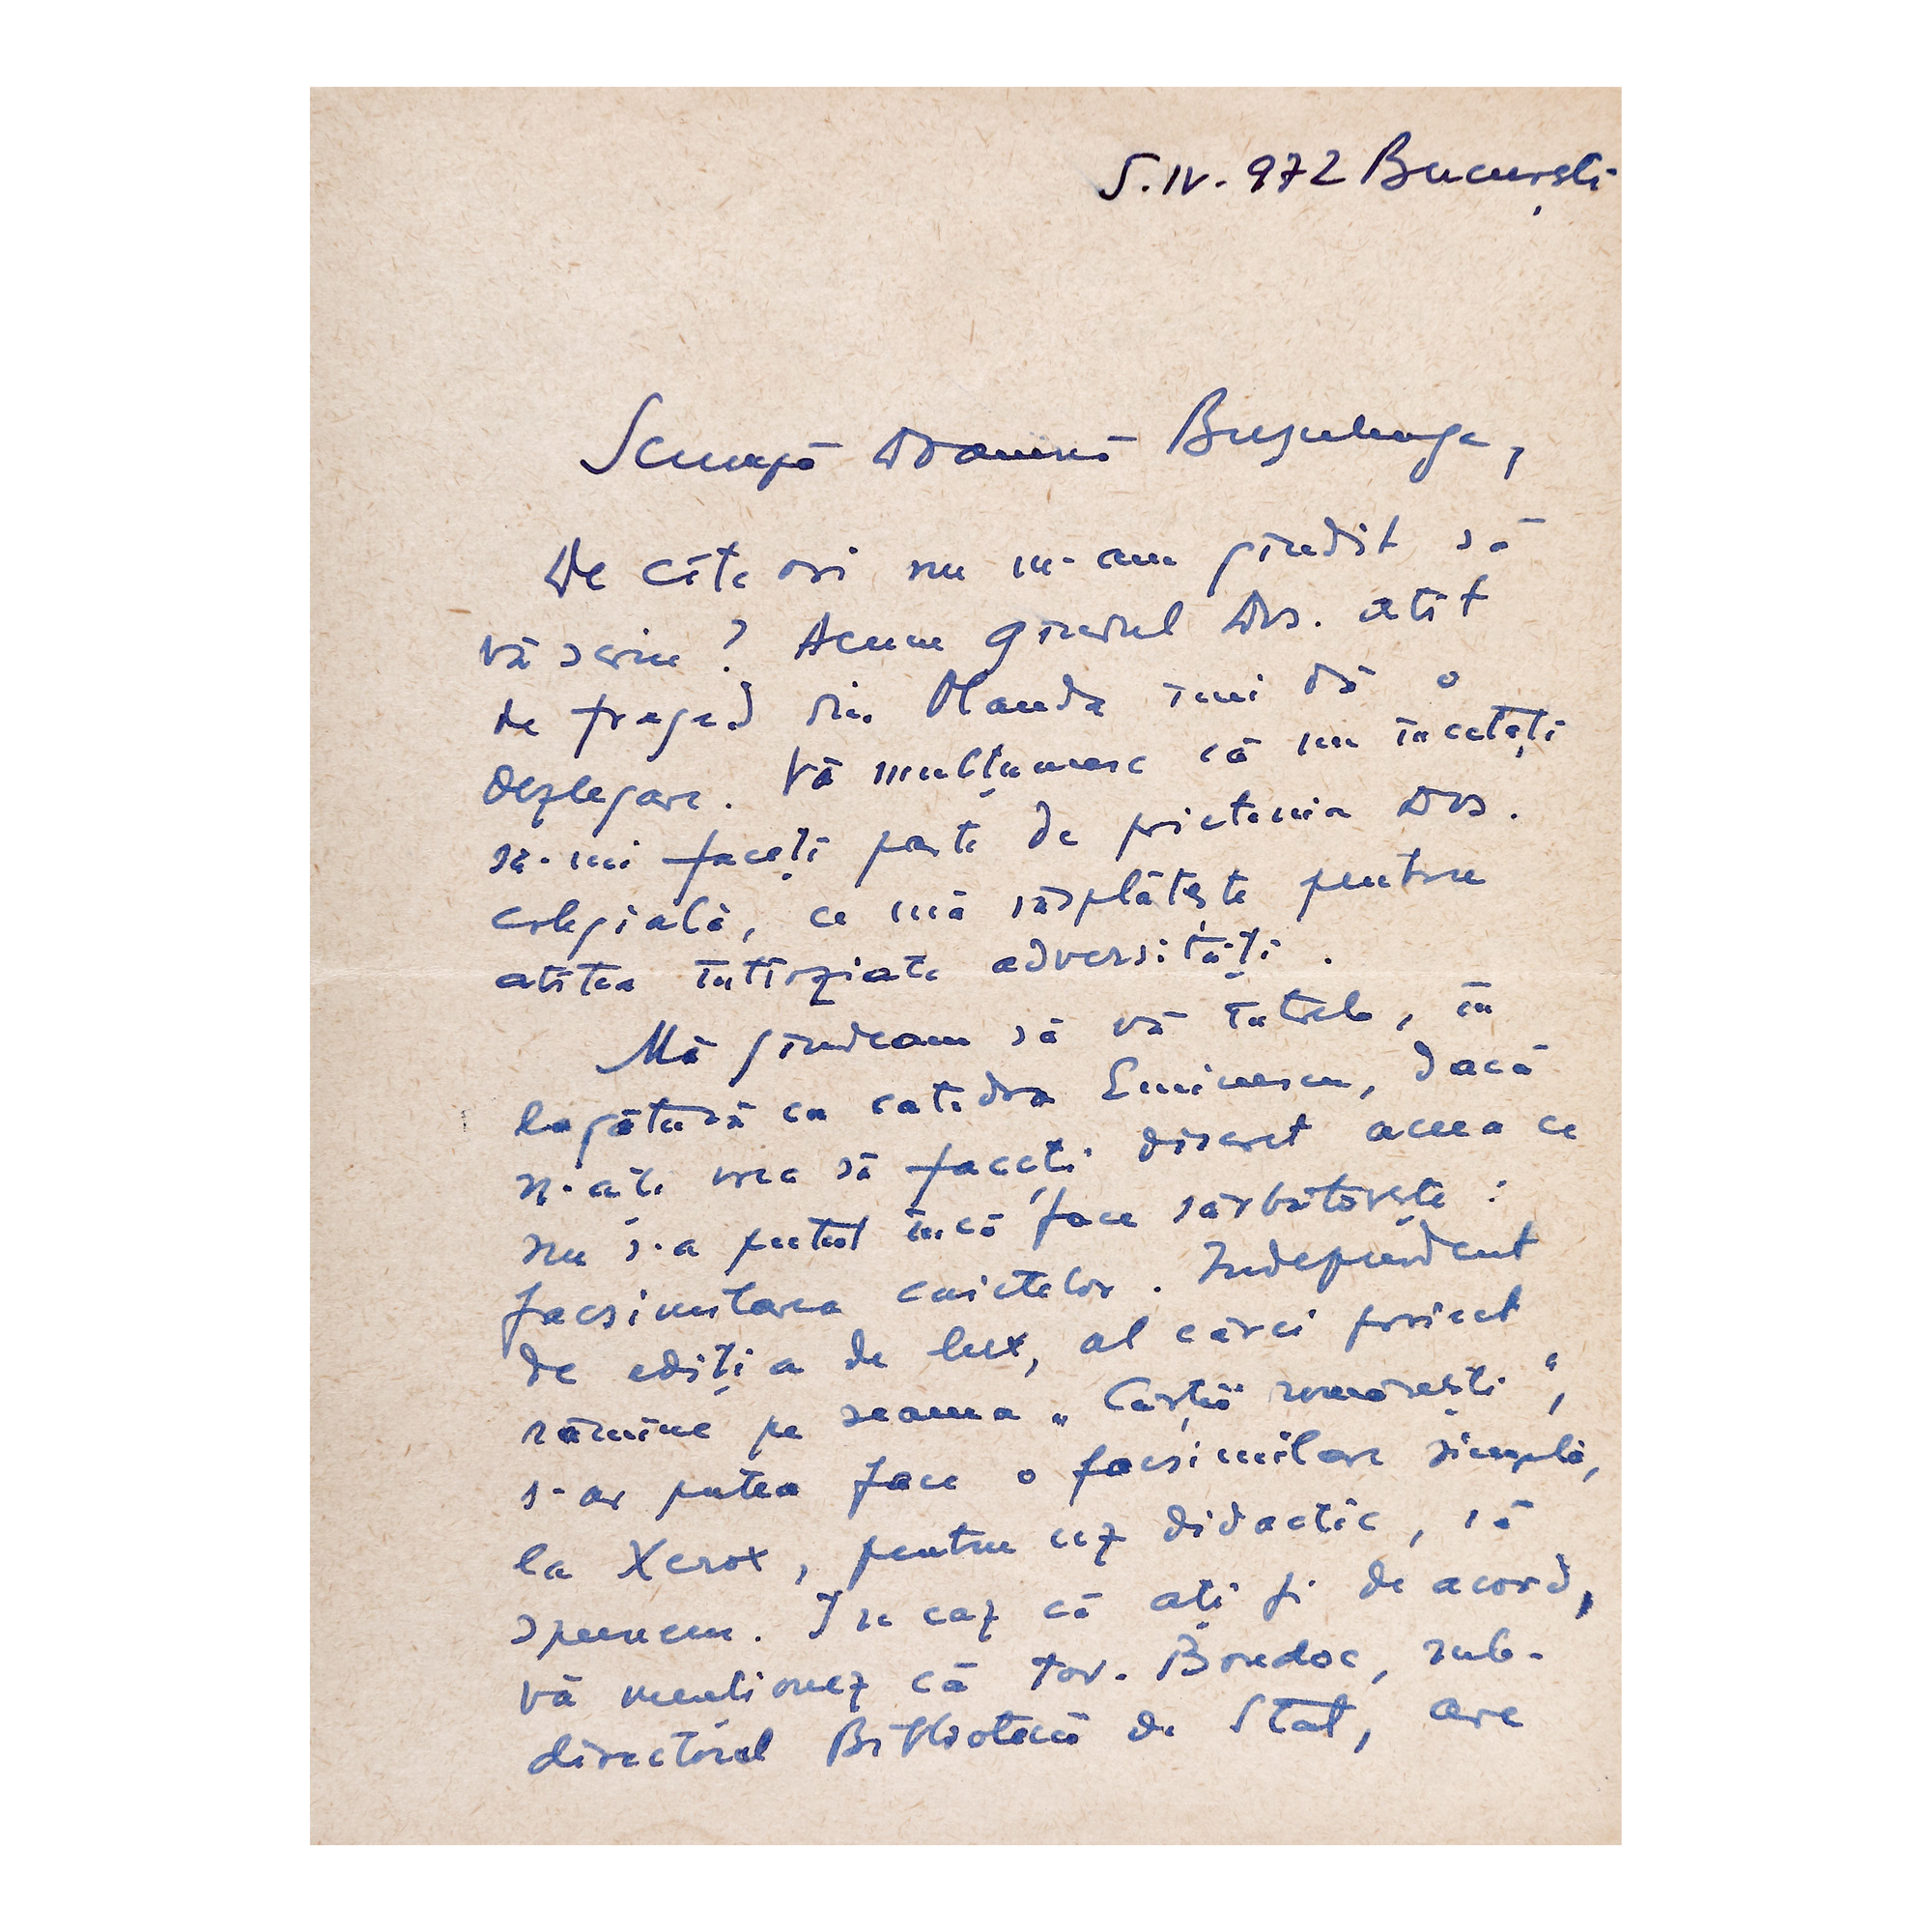 5.IV.972 București
Scumpă Doamnă Bușulenga,
De cîte ori nu m-am gîndit să
vă scriu? Acum gîndul Dvs. atît
de fraged din Olanda îmi dă o
dezlegare. Vă mulțumesc că nu încetați
să-mi faceți parte de prietenia Dvs.
colegială, ce mă răsplătește pentru
atîtea întîrziate adversități.
Mă gîndeam să vă întreb, în
legătură cu catedra Eminescu, dacă
n-ați vrea să faceți discret aceea ce
nu s-a putut încă face sărbătorește:
facsimilarea caietelor. Independent
de ediția de lux, al cărei proiect
rămîne pe seama „Cărții românești",
s-ar putea face o facsimilare simplă,
la Xerox, pentru uz didactic, să
spunem. În caz că ați fi de acord,
vă menționez că tov. Bordoc, sub-
directorul Bibliotecii de Stat, are